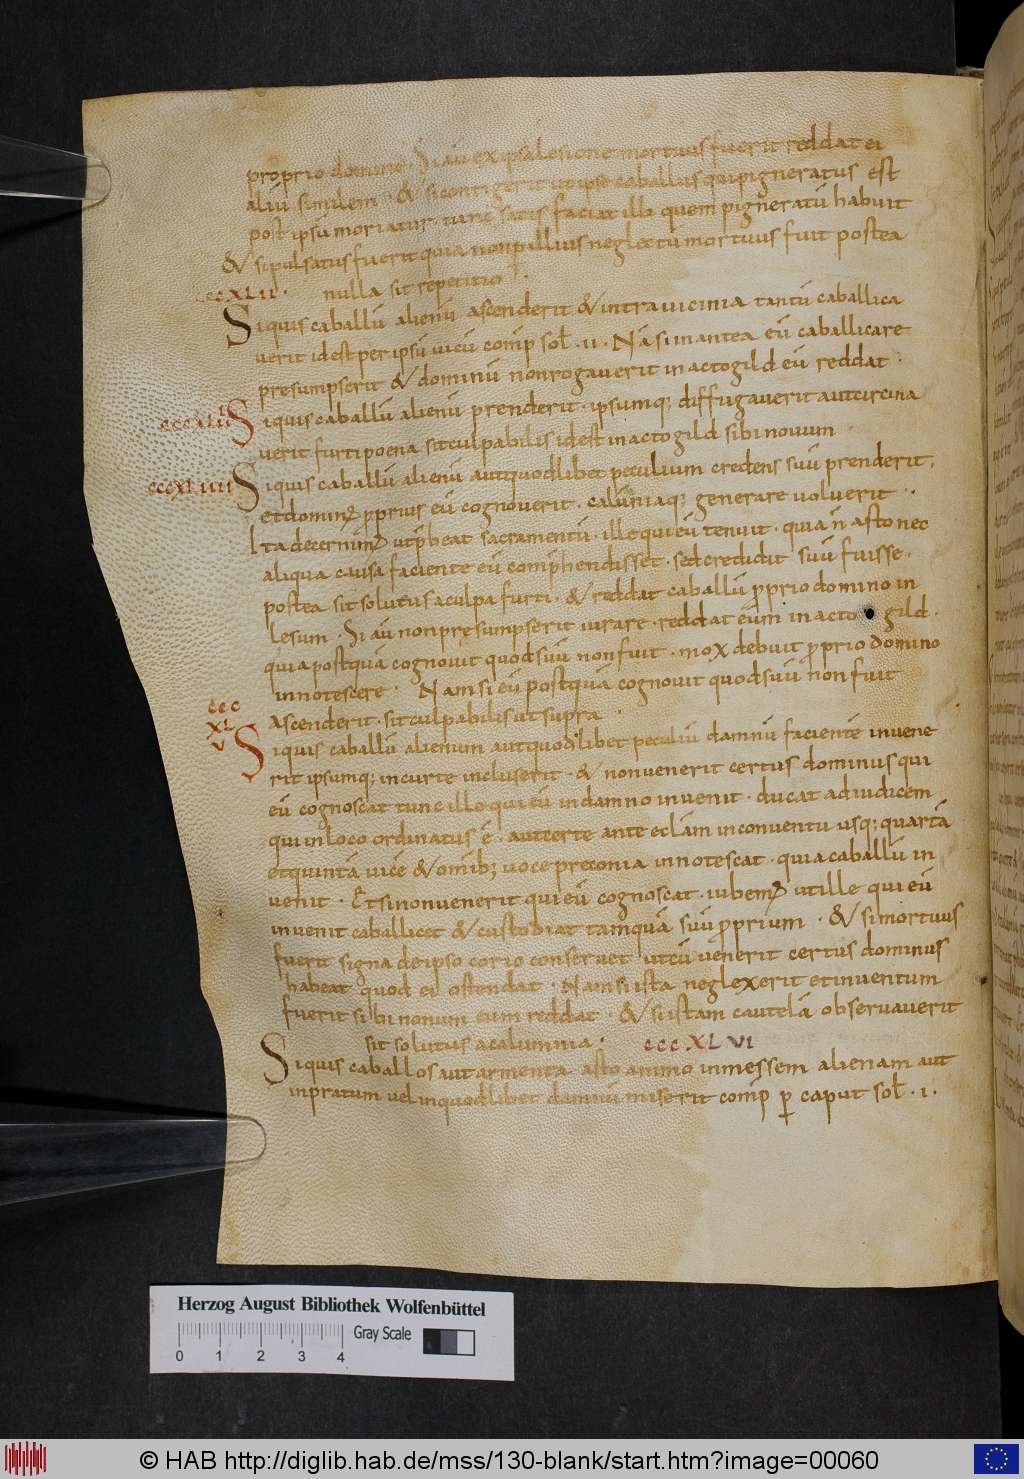 proprio domino. Si aū ex ipsa lesione mortuus fuerit reddat ei
aliū similem. & si contigerit ut ipse caballus qui pigneratus est
post ipsū moriatur. tunc satis faciat illi quem pigneratū habuit
& si pulsatus fuerit quia non p illius neglectū mortuus fuit postea
cccXLII. nulla sit repetitio
Si quis caballū alienū ascenderit & intra vicinia tantū caballica
verit id est per ipsū vicū comp sol. II. Nā si in antea eū caballicare
presumpserit & dominū non rogaverit in actogild eū reddat.
cccXLIII Si quis caballū alienū prenderit. ipsumq; diffugaverit aut circina
verit furti poena sit culpabilis id est in actogild sibi novum
cccXLIIII Si quis caballū alienū aut quodlibet peculium credens suū prenderit.
et dominus pprius eū cognoverit. calūniaq; generare voluerit.
Ita decernimus ut pbeat sacramentū. ille qui eū tenuit. quia n̄ asto nec
aliqua causa faciente eū comphendisset. sed credidit suū fuisse.
postea sit solutus a culpa furti. & reddat caballū pprio domino in
lesum. Si aū non presumpserit iurare. reddat eum in acto gild.
quia postquā cognovit quod suū non fuit. mox debuit pprio domino
innotescere. Nam si eū postquā cognovit quod suū non fuit
ascenderit. sit culpabilis ut supra.
ccc
XL
V
Si quis caballū alienum aut quodlibet peculiū damnū faciente invene
rit ipsumq; in curte incluserit. & non venerit certus dominus qui
eū cognoscat tunc ille qui eū in damno invenit. ducat ad iudicem
qui in loco ordinatus ē. aut certe ante eclām in conventu usq; quartā
et quintā vicē & omib; voce preconia innotescat. quia caballū in
venit. Et si non venerit qui eū cognoscat. iubemus ut ille qui eū
invenit caballicet & custodiat tamquā suū pprium. & si mortuus
fuerit signa de ipso corio conservet ut cū venerit certus dominus
habeat quod ei ostendat. Nam si ista neglexerit et inventum
fuerit sibi nonum eum reddat. & si istam cautelā observaverit
sit solutus a calumnia. cccXLVI
Si quis caballos aut armenta asto animo in messem alienam aut
in pratum vel in quodlibet damnū miserit comp p caput sol. I.
Herzog August Bibliothek Wolfenbüttel
Gray Scale
0 1 2 3 4
© HAB http://diglib.hab.de/mss/130-blank/start.htm?image=00060